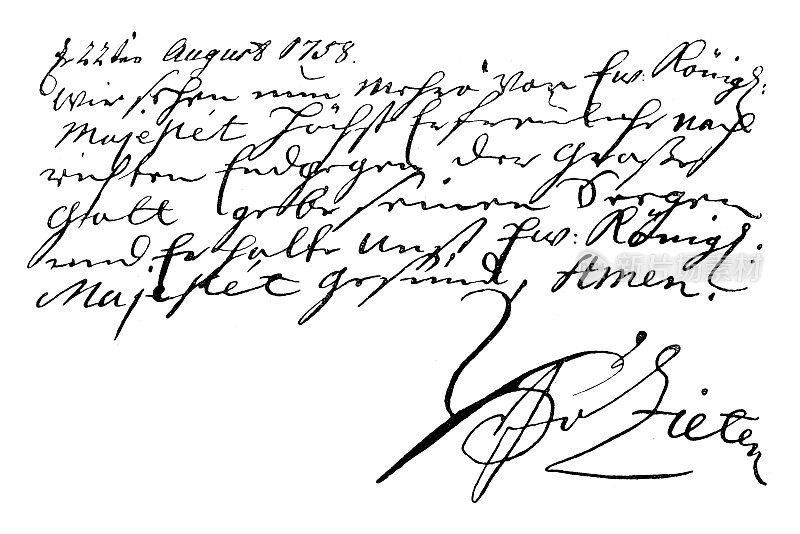 22ten August 1758.
Wir sehen nun mehro von Ew. Königl:
Majestét Höchst Erfreuliche nach
richten Endgegen der Große
Gott gebe seinen Seegen
und Erhalte unß Ew: Königl.
Majestét gesund, Amen.
v Zieten